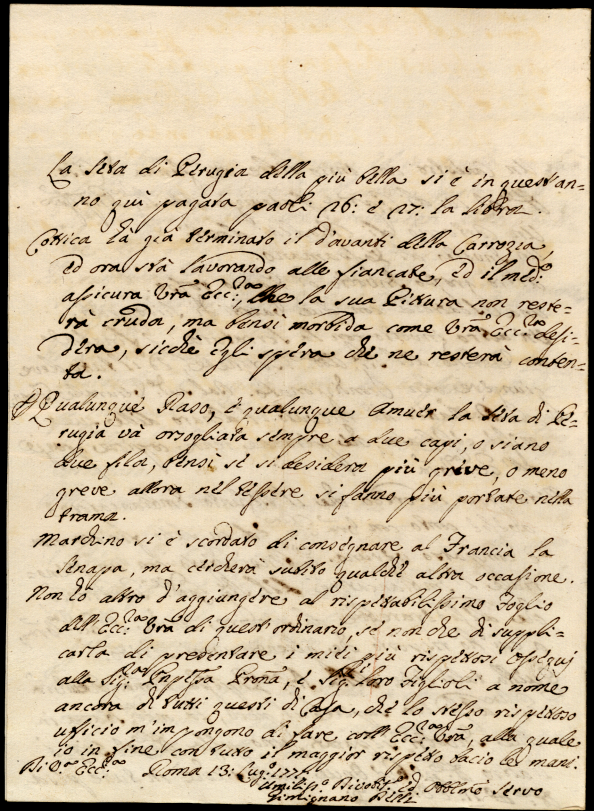 La seta di Perugia della più bella si è in quest'an=
no quì pagata paoli 26: e 27: la libra.
Cottica hà già terminato il d'avanti della Carrozza,
ed ora stà lavorando alle fiancate, ed il med:o
assicura Vra Ecc:za, che la sua Pittura non reste=
rà cruda, ma bensì morbida come Vra Ecc:za desi=
dera, sicchè Egli spera che ne resterà conten=
ta.
Qualunque Raso, è qualunque Amuer la seta di Pe=
rugia và orsogliata sempre a due capi, o siano
due fila, bensì se si desidera più greve, o meno
greve allora nel tessere si fanno più portate nella
trama.
Marchino si è scordato di consegnare al Francia la
Senapa, ma cercherà subito qualche altra occasione.
Non hò altro d'aggiungere al rispettabilissimo Foglio
dell'Ecc:za Vra di quest'ordinario, se non che di suppli=
carla di presentare i miei più rispettosi ossequj
alla Sig:ra Pnpessa Prona, è Sig: loro Figlioli a nome
ancora di tutti questi di Casa, che lo stesso rispettoso
ufficio m'impongono di fare coll'Ecc:za Vra, alla quale
io in fine con tutto il maggior rispetto bacio le mani.
Di V.a Ecc:za Roma 13: Lug:o
Umilis:o Divotis:o ed Obblmo Servo
Gimignano